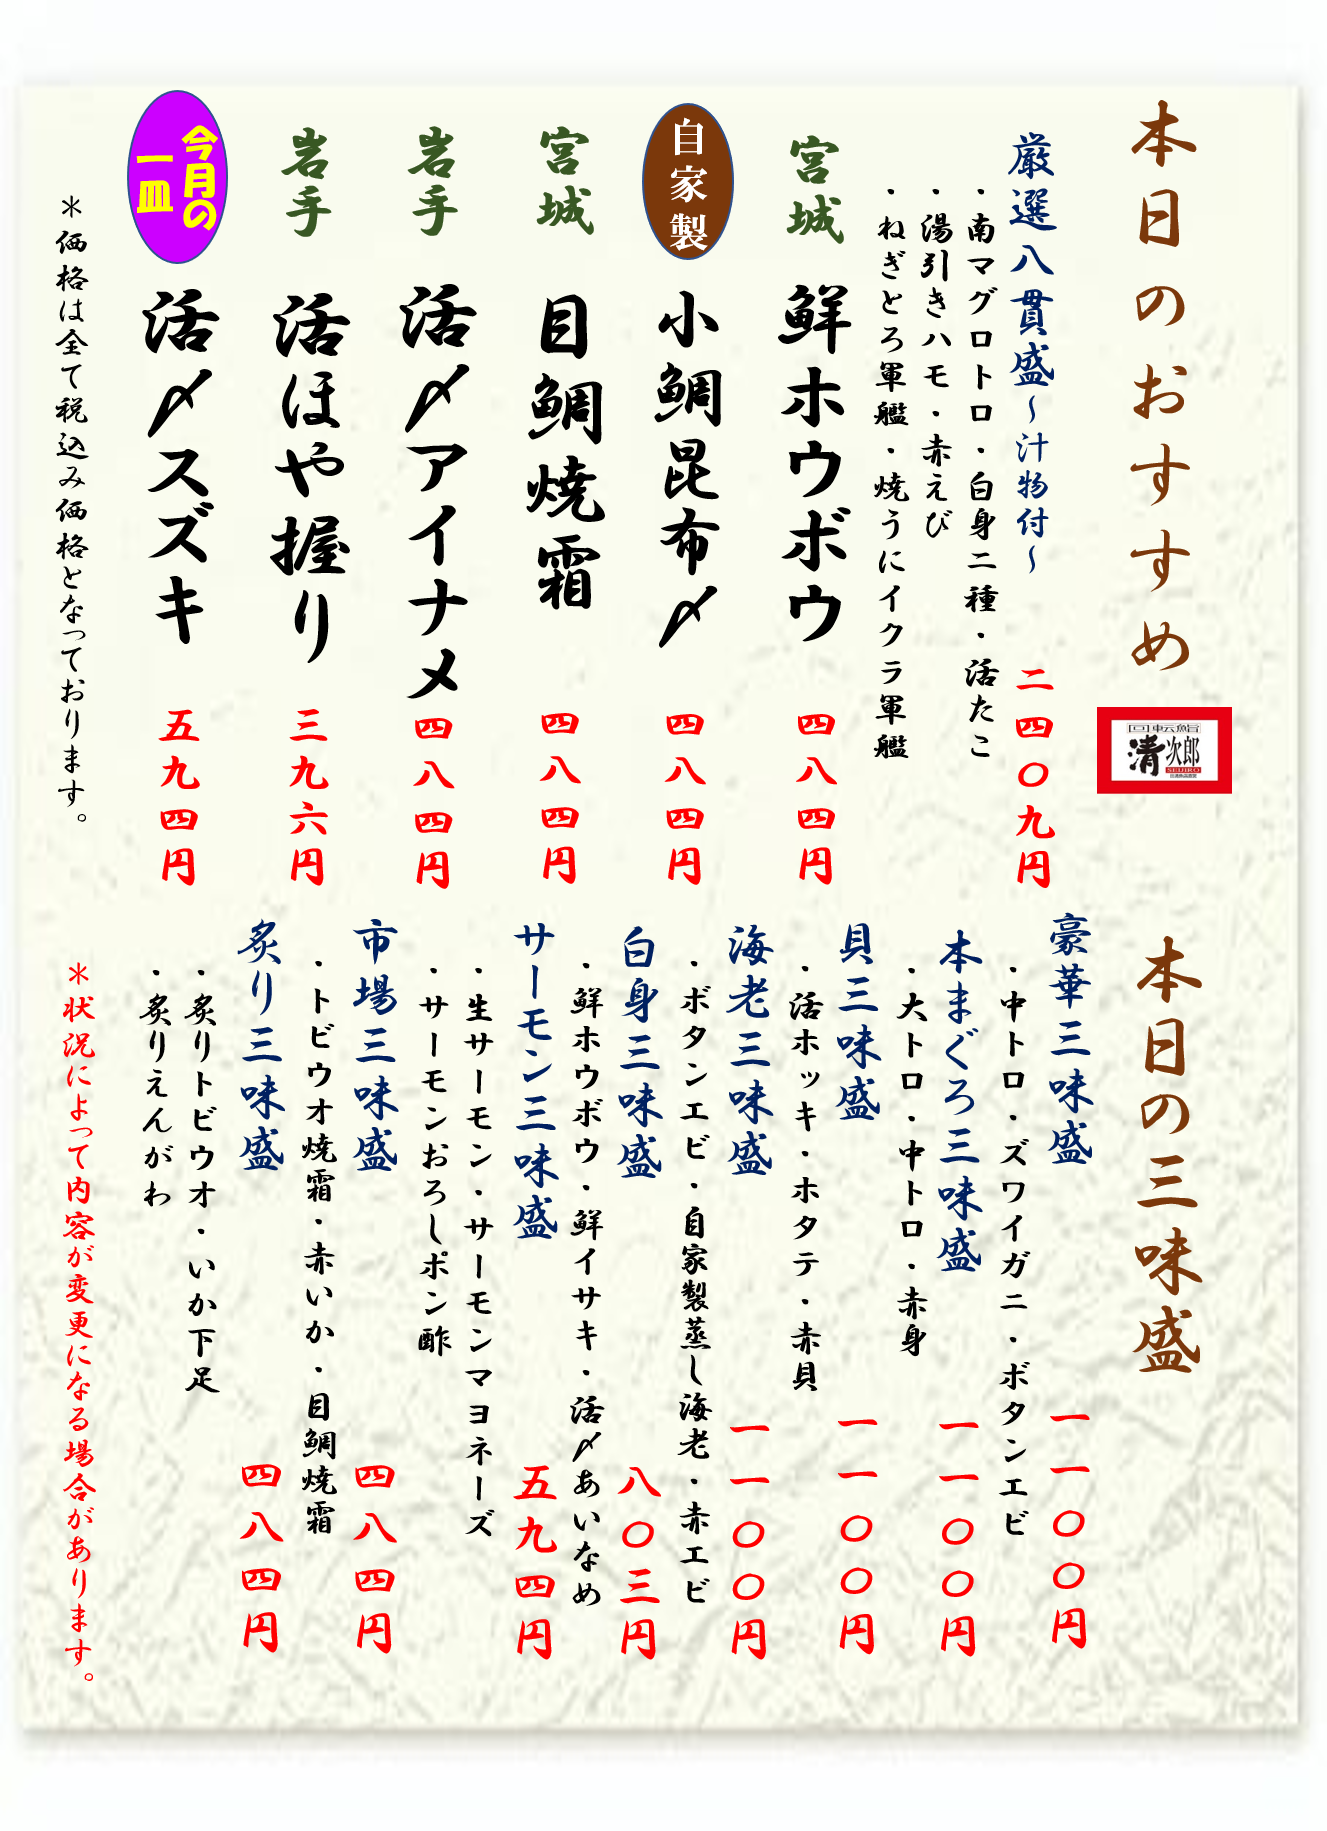 本日のおすすめ
回転鮨
清次郎
SEIJIRO
厳選八貫盛～汁物付～ 二四〇九円
・南マグロトロ・白身二種・活たこ
・湯引きハモ・赤えび
・ねぎとろ軍艦・焼うにイクラ軍艦
宮城 鮮ホウボウ 四八四円
自家製 小鯛昆布〆 四八四円
宮城 目鯛焼霜 四八四円
岩手 活〆アイナメ 四八四円
岩手 活ほや握り 三九六円
今月の
一皿
活〆スズキ 五九四円
＊価格は全て税込み価格となっております。
本日の三味盛
豪華三味盛 一一〇〇円
・中トロ・ズワイガニ・ボタンエビ
本まぐろ三味盛 一一〇〇円
・大トロ・中トロ・赤身
貝三味盛 一一〇〇円
・活ホッキ・ホタテ・赤貝
海老三味盛 一一〇〇円
・ボタンエビ・自家製蒸し海老・赤エビ
白身三味盛 八〇三円
・鮮ホウボウ・鮮イサキ・活〆あいなめ
サーモン三味盛 五九四円
・生サーモン・サーモンマヨネーズ
・サーモンおろしポン酢
市場三味盛 四八四円
・トビウオ焼霜・赤いか・目鯛焼霜
炙り三味盛 四八四円
・炙りトビウオ・いか下足
・炙りえんがわ
＊状況によって内容が変更になる場合があります。